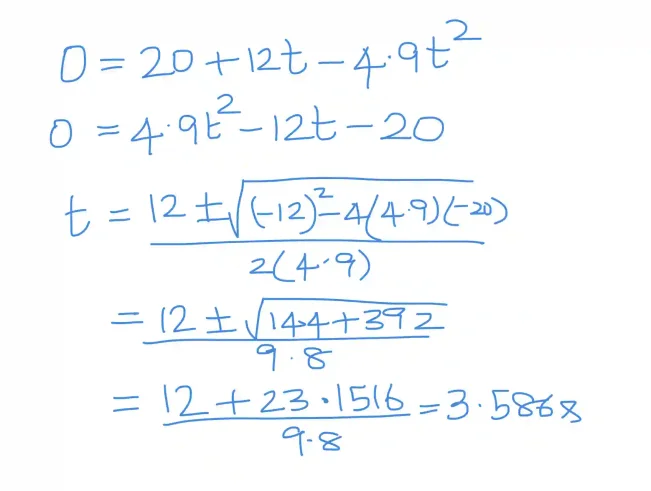 0 = 20 + 12t - 4.9t²
0 = 4.9t² - 12t - 20
t = 12 ± √(-12)² - 4(4.9)(-20)
2(4.9)
= 12 ± √144 + 392
9.8
= 12 + 23.1516 = 3.5868
9.8